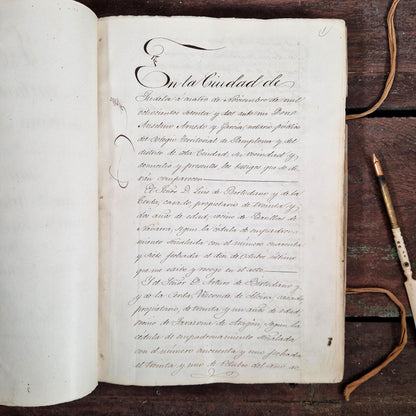 1
En la Ciudad de
Tudela á cuatro de Noviembre de mil
ochocientos setenta y dos ante mi Don
Anselmo Arnedo y Garcia, notario público
del Colegio Territorial de Pamplona y del
distrito de esta Ciudad, su vecindad y
domicilio y presentes los testigos que se di-
rán comparecen
El Señor D. Luis de Bertodano y de la
Cerda, casado, propietario de treinta y
dos años de edad, vecino de Barillas de
Navarra, segun la cédula de empadrona-
miento señalada con el número cuarenta
y seis fechada el dia de Octubre último
que me exibe y recoge en el acto
Y el Señor D. Arturo de Bertodano y
y de la Cerda, Vizconde de Alcira, casado
propietario, de treinta y un años de edad,
vecino de Tarazona de Aragon, segun la
cédula de empadronamiento señalada
con el número cincuenta y uno fechada
el treinta y uno de Octubre del año de